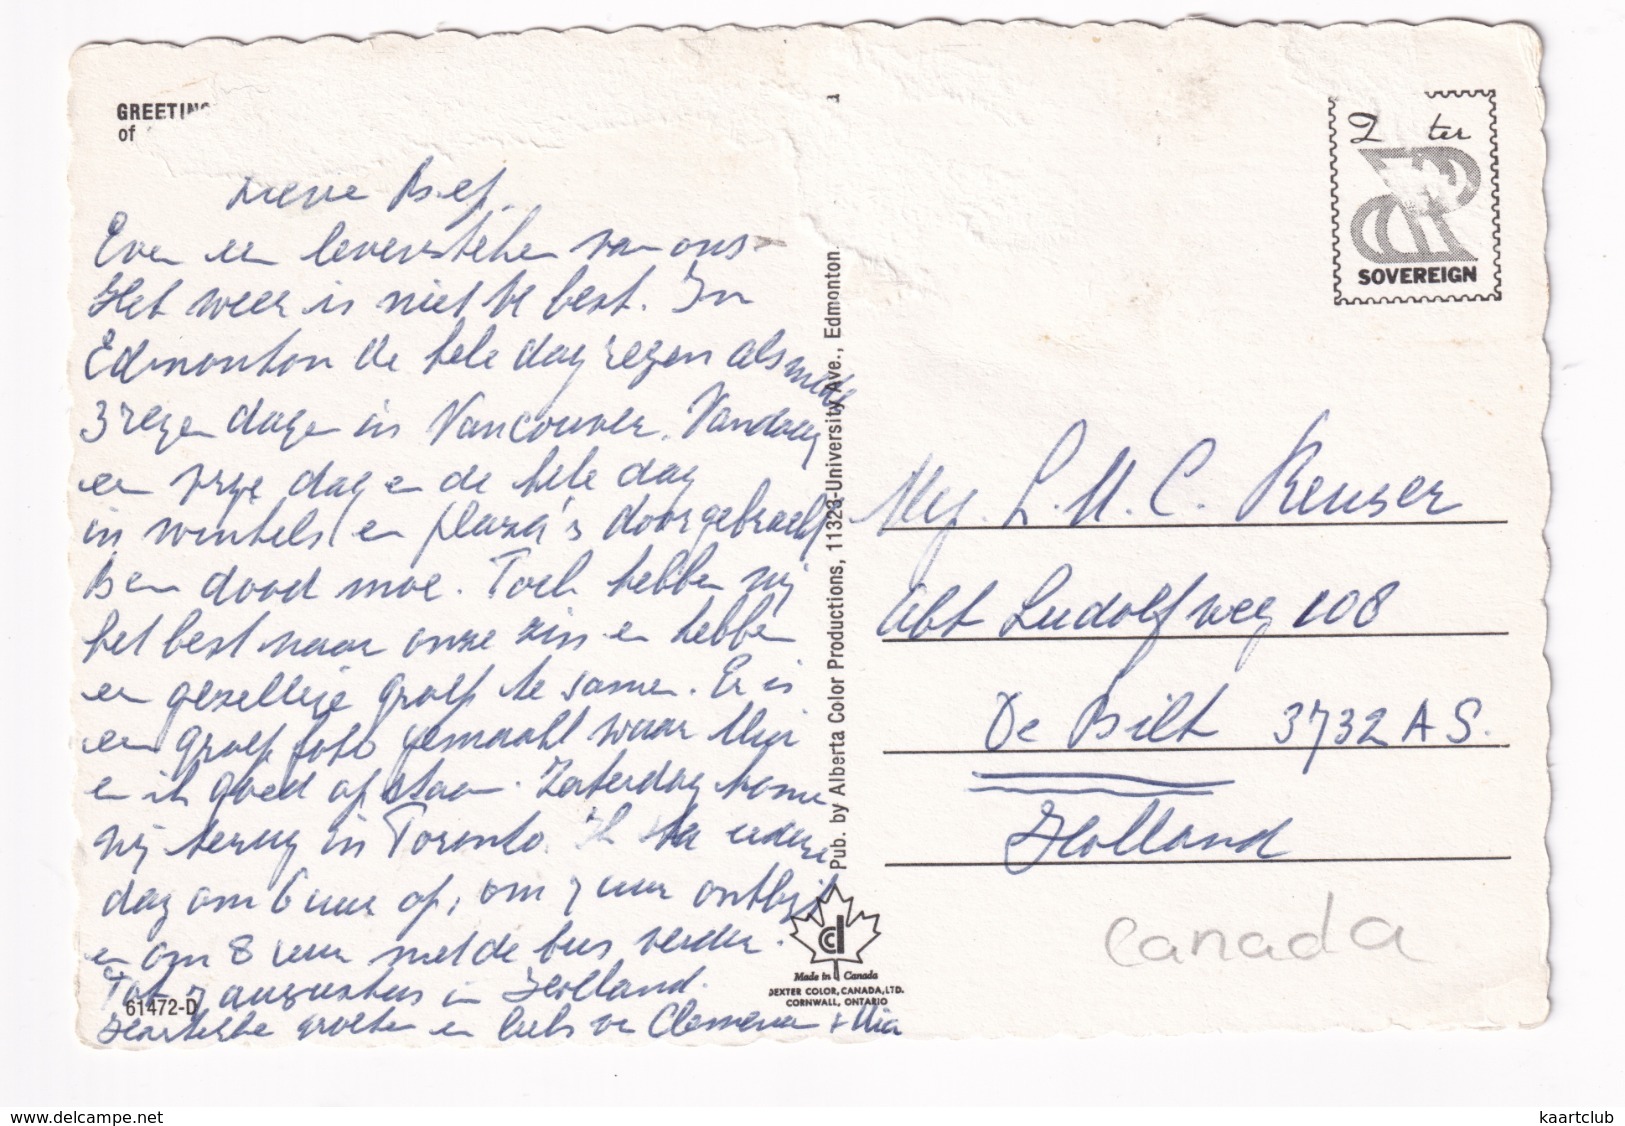 GREETING
of
Lieve Bep.
Even een levensteken van ons
Het weer is niet te best. In
Edmonton de hele dag regen alsmede
3 regen dagen in Vancouver. Vandaag
een vrije dag en de hele dag
in winkels en plaza's doorgebracht
Ben dood moe. Toch hebben wij
het best naar onze zin en hebben
een gezellige groep te samen. Er is
een groep foto gemaakt waar Mia
en ik goed op staan. Zaterdag komen
wij terug in Toronto. Ik sta iedere
dag om 6 uur op, om 7 uur ontbijt
en om 8 uur met de bus verder.
Tot 7 augustus in Holland.
Hartelijke groeten en liefs van Clemence + Mia
61472-D
Pub. by Alberta Color Productions, 11323-University Ave., Edmonton.
Made in Canada
DEXTER COLOR, CANADA, LTD.
CORNWALL, ONTARIO
ter
SOVEREIGN
Mej. L. M. C. Reuser
Abt Ludolfweg 108
De Bilt 3732 AS.
Holland
Canada
www.delcampe.net
kaartclub